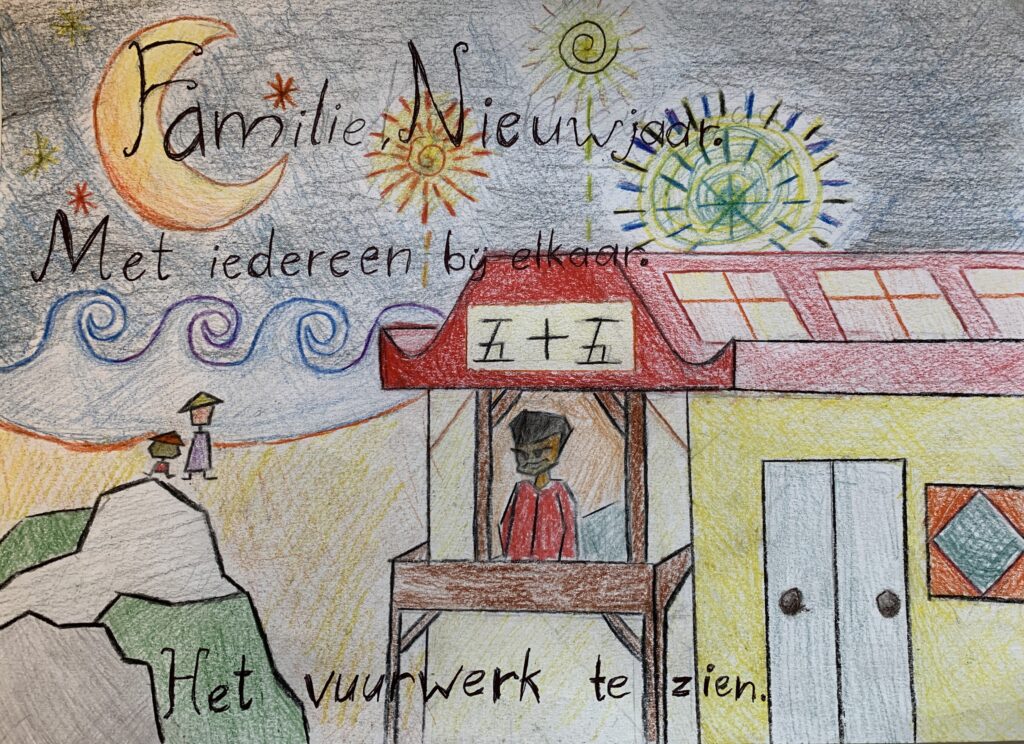 Familie. Nieuwjaar.
Met iedereen bij elkaar.
五十五
Het vuurwerk te zien.